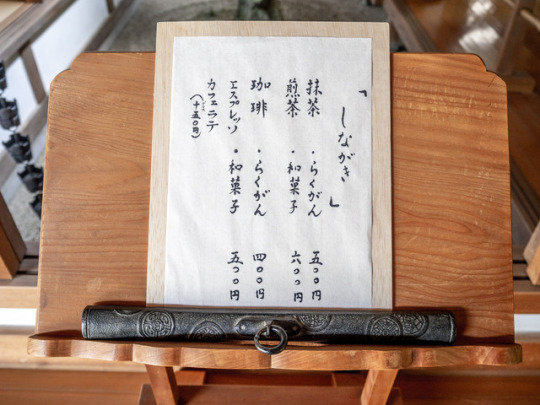 「しながき」
抹茶 ・らくがん 五〇〇円
煎茶 ・和菓子 六〇〇円
珈琲 ・らくがん 四〇〇円
エスプレッソ ・和菓子 五〇〇円
カフェラテ
(十五〇円)